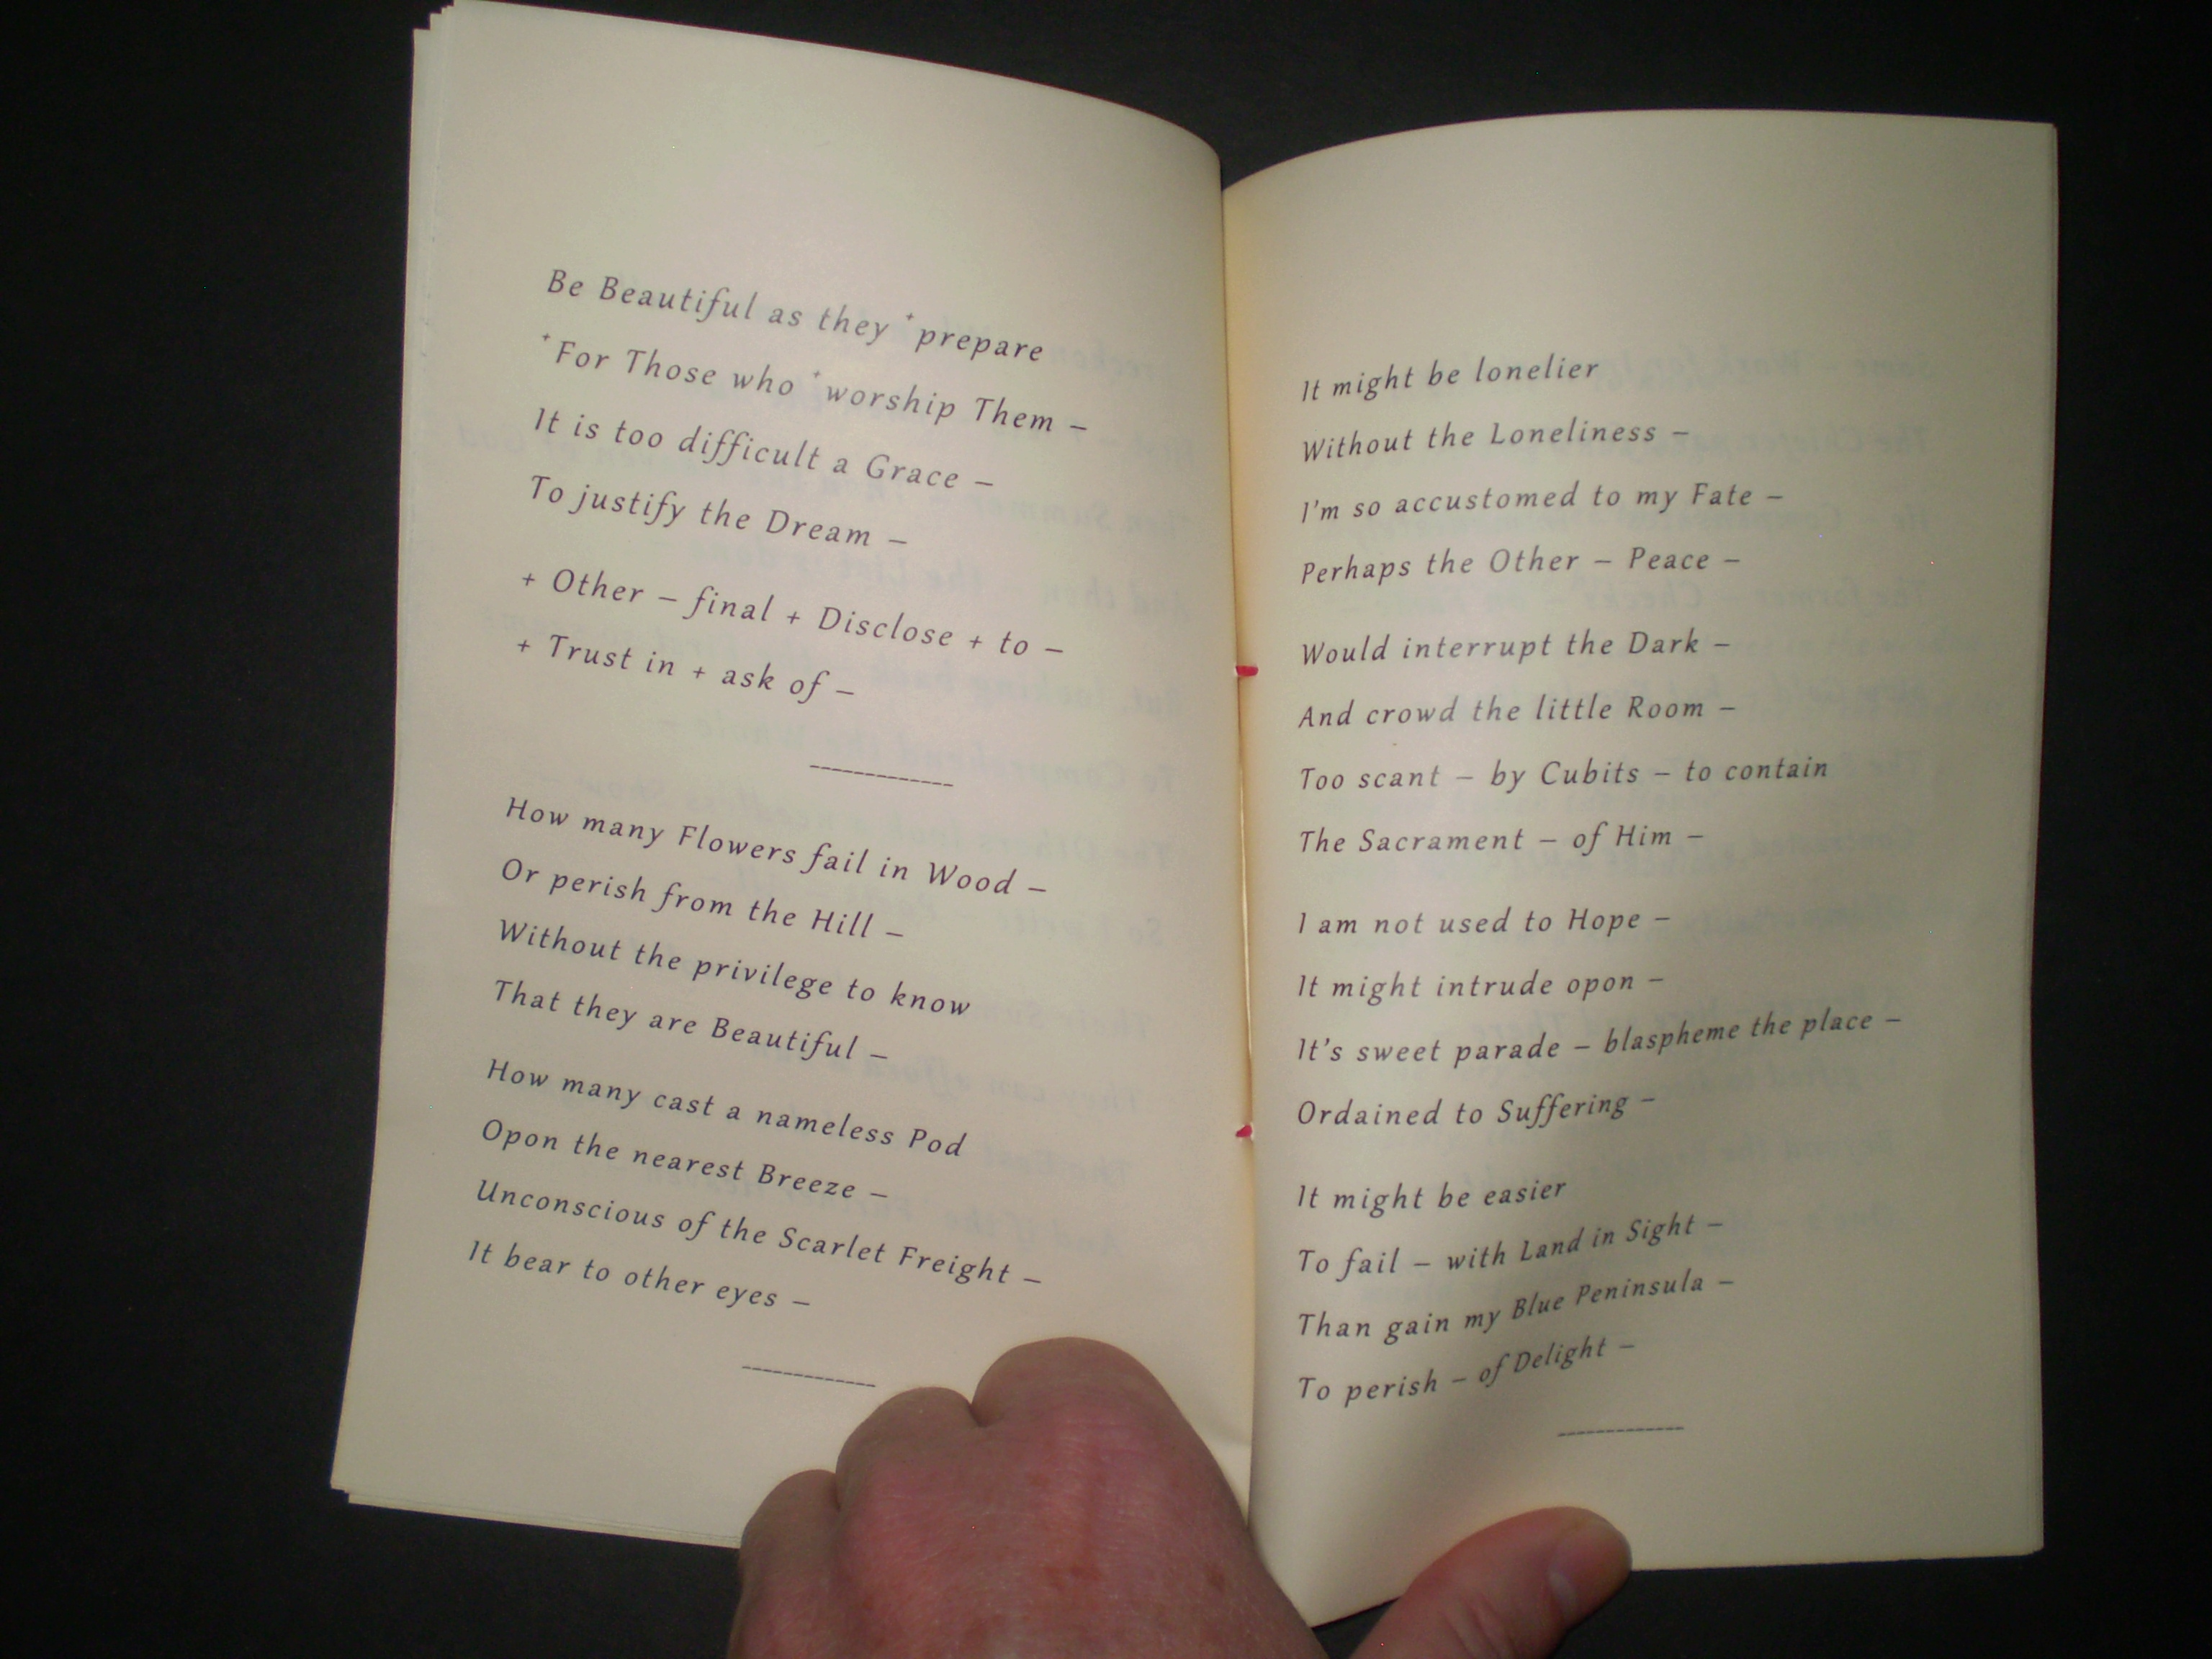 Be Beautiful as they +prepare
+For Those who +worship Them –
It is too difficult a Grace –
To justify the Dream –
+ Other – final + Disclose + to –
+ Trust in + ask of –
How many Flowers fail in Wood –
Or perish from the Hill –
Without the privilege to know
That they are Beautiful –
How many cast a nameless Pod
Opon the nearest Breeze –
Unconscious of the Scarlet Freight –
It bear to other eyes –
It might be lonelier
Without the Loneliness –
I'm so accustomed to my Fate –
Perhaps the Other – Peace –
Would interrupt the Dark –
And crowd the little Room –
Too scant – by Cubits – to contain
The Sacrament – of Him –
I am not used to Hope –
It might intrude opon –
It's sweet parade – blaspheme the place –
Ordained to Suffering –
It might be easier
To fail – with Land in Sight –
Than gain my Blue Peninsula –
To perish – of Delight –